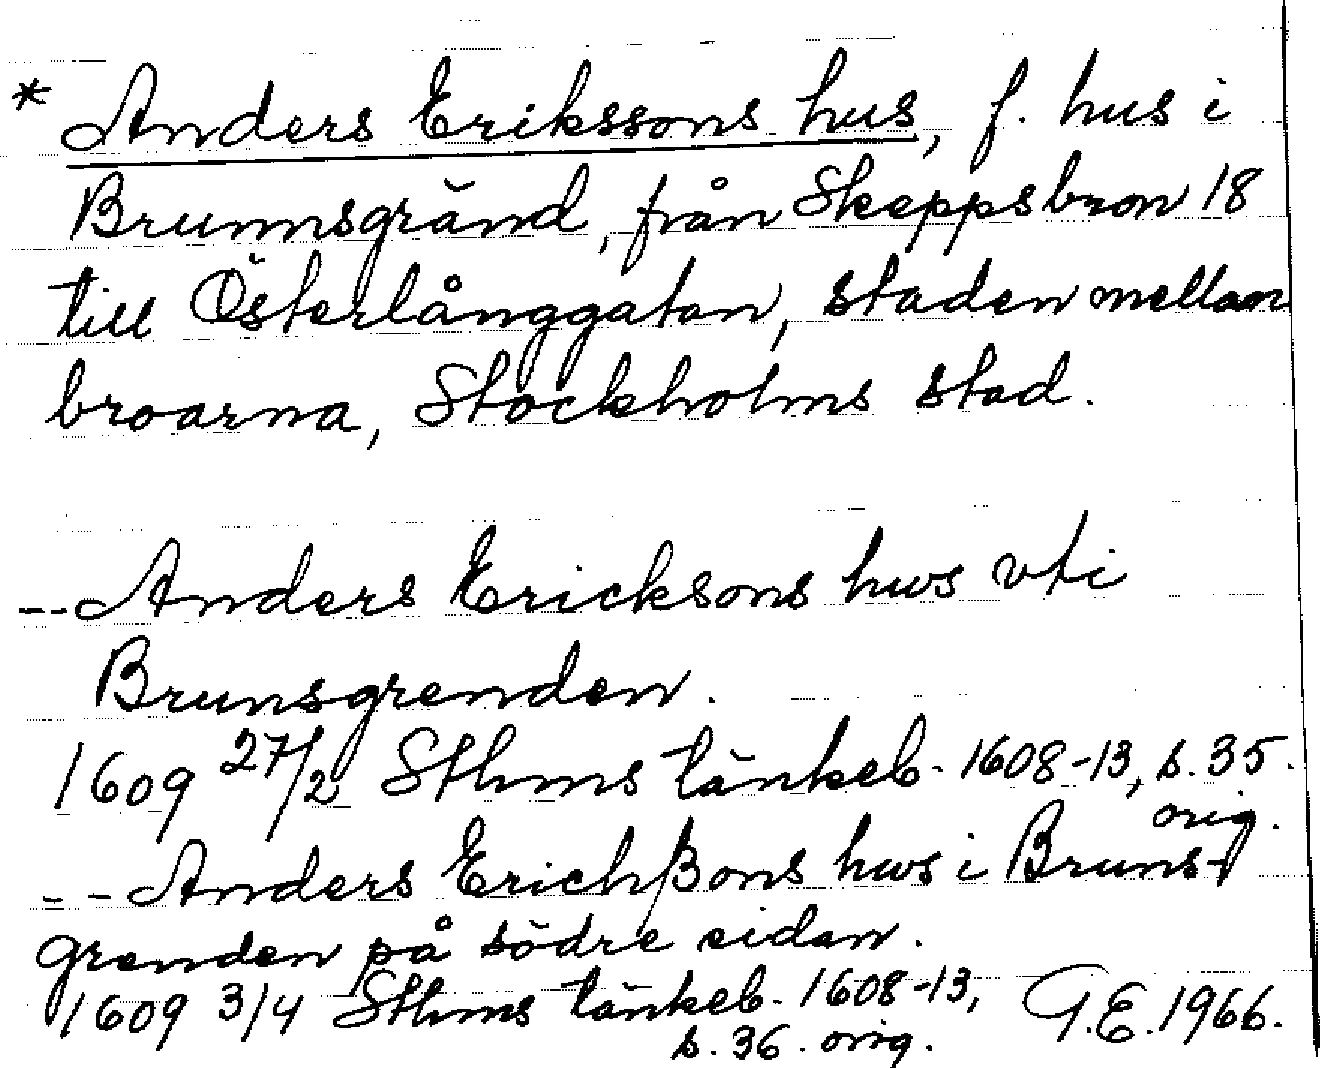 * Anders Erikssons hus, f. hus i
Brunnsgränd, från Skeppsbron 18
till Österlånggatan, staden mellan
broarna, Stockholms stad.
-- Anders Ericksons hws vti
Brunsgrenden.
1609 27/2 Sthms tänkeb. 1608-13, s. 35.
orig.
-- Anders Erichßons hws i Bruns-
grenden på södre sidan.
1609 3/4 Sthms tänkeb. 1608-13,
s. 36. orig.
G.E. 1966.